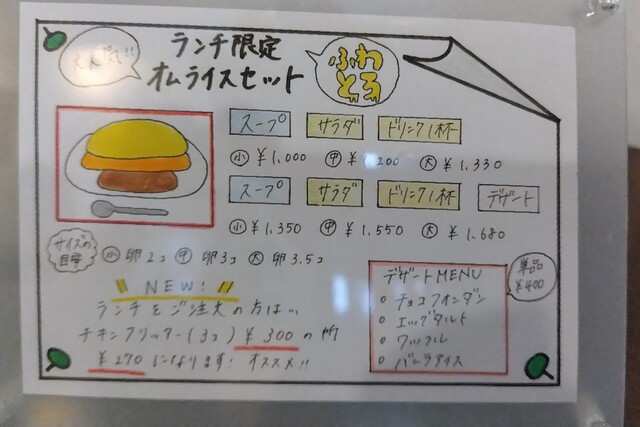 大人気!!
ランチ限定
オムライスセット
ふわ
とろ
スープ サラダ ドリンク1杯
小 ¥1.000 中 ¥1.200 大 ¥1.330
スープ サラダ ドリンク1杯 デザート
小 ¥1.350 中 ¥1.550 大 ¥1.680
サイズの
目安
小 卵2コ 中 卵3コ 大 卵3.5コ
NEW!
ランチをご注文の方は…
チキンフリッター(3コ) ¥300の所
¥270になります! オススメ!!
デザートMENU
単品
¥400
チョコフォンダン
エッグタルト
ワッフル
バニラアイス